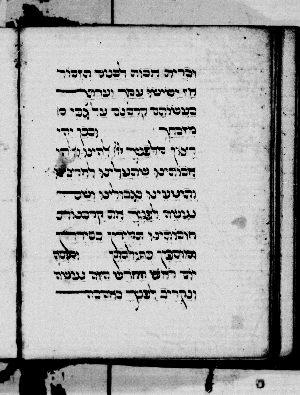 לפניך תזכור
עמך
בעשותם קרבנם על גבי
מזבחך ובכן יהי
רצון מלפניך יי אלהינו ואלהי
אבותינו שתעלינו לארצנו
ותטעינו בגבולינו ושם
נעשה לפניך את קרבנות
חובותינו תמידין כסידרן
ומוספין כהלכתן ומוסף
יום ראש החדש הזה נעשה
ונקריב לפניך באהבה